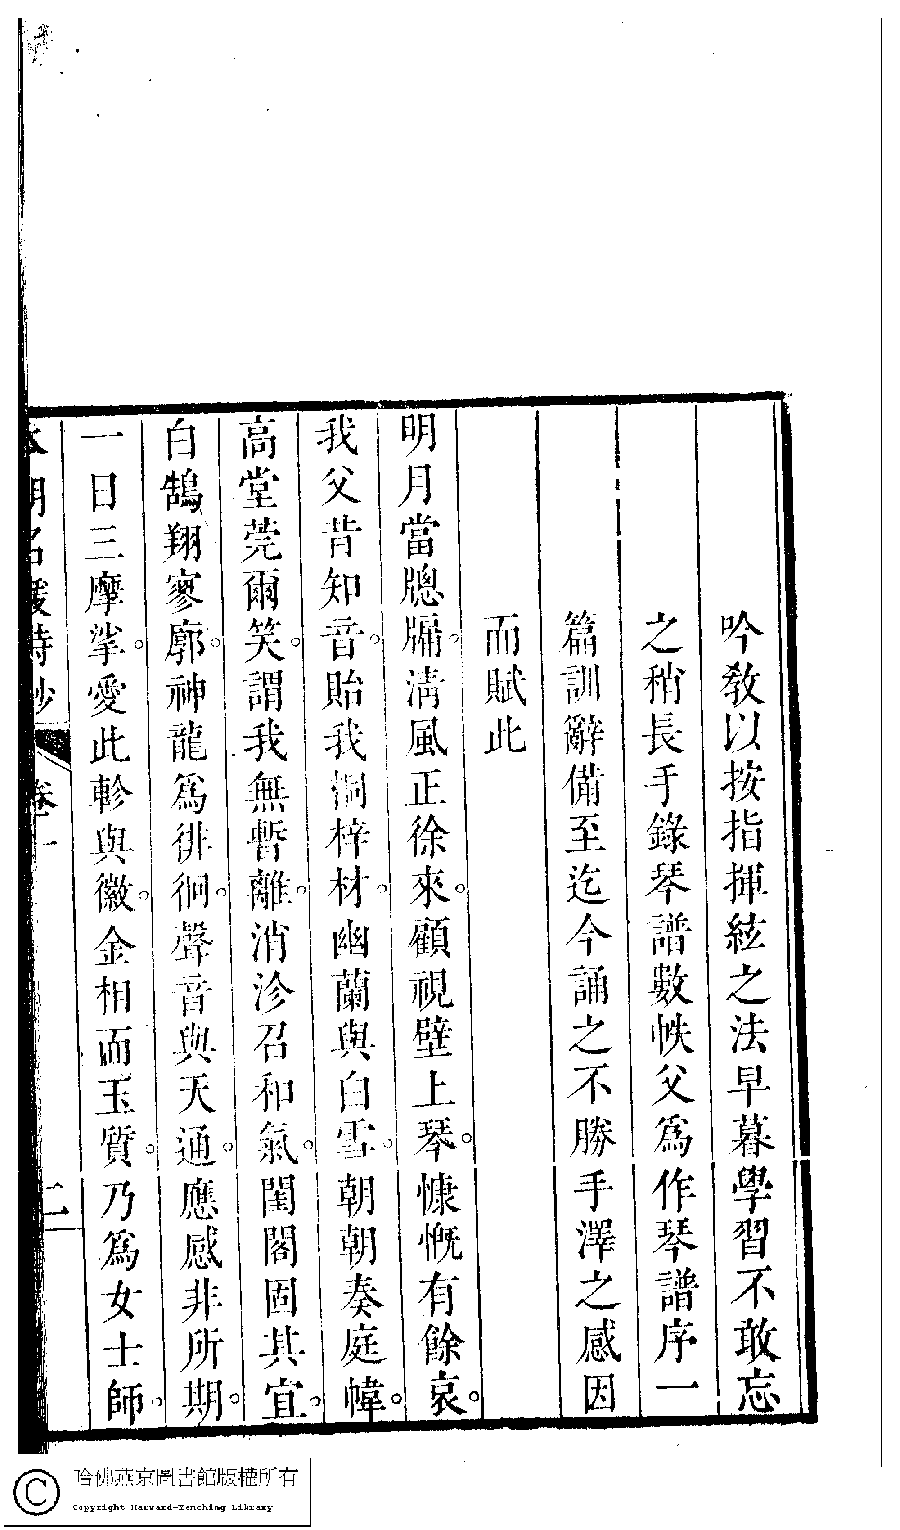 吟教以按指揮絃之法早暮學習不敢忘
之稍長手錄琴譜數帙父爲作琴譜序一
篇訓辭備至迄今誦之不勝手澤之感因
而賦此
明月當牕牖。清風正徐來。顧視壁上琴。慷慨有餘哀。
我父昔知音。貽我桐梓材。幽蘭與白雪。朝朝奏庭幃。
高堂莞爾笑。謂我無暫離。消沴召和氣。閨閣固其宜。
白鵠翔寥廓。神龍爲徘徊。聲音與天通。應感非所期。
一日三摩挲。愛此軫與徽。金相而玉質。乃爲女士師。
本朝名媛詩鈔 卷一 二
哈佛燕京圖書館版權所有
Copyright Harvard-Yenching Library